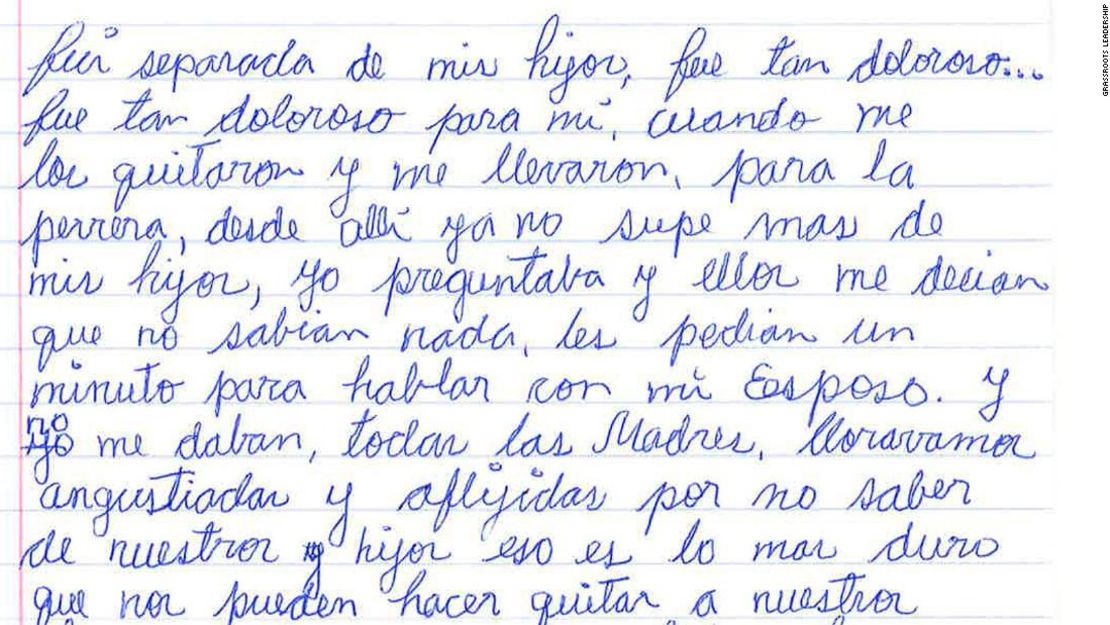 fui separada de mis hijos, fue tan doloroso...
fue tan doloroso para mi, cuando me
los quitaron y me llevaron, para la
perrera, desde alli ya no supe mas de
mis hijos, yo preguntaba y ellos me decian
que no sabian nada, les pedian un
minuto para hablar con mi Esposo. Y
no me daban, todas las Madres, lloravamos
angustiadas y aflijidas por no saber
de nuestros hijos eso es lo mas duro
que nos pueden hacer quitar a nuestros
GRASSROOTS LEADERSHIP